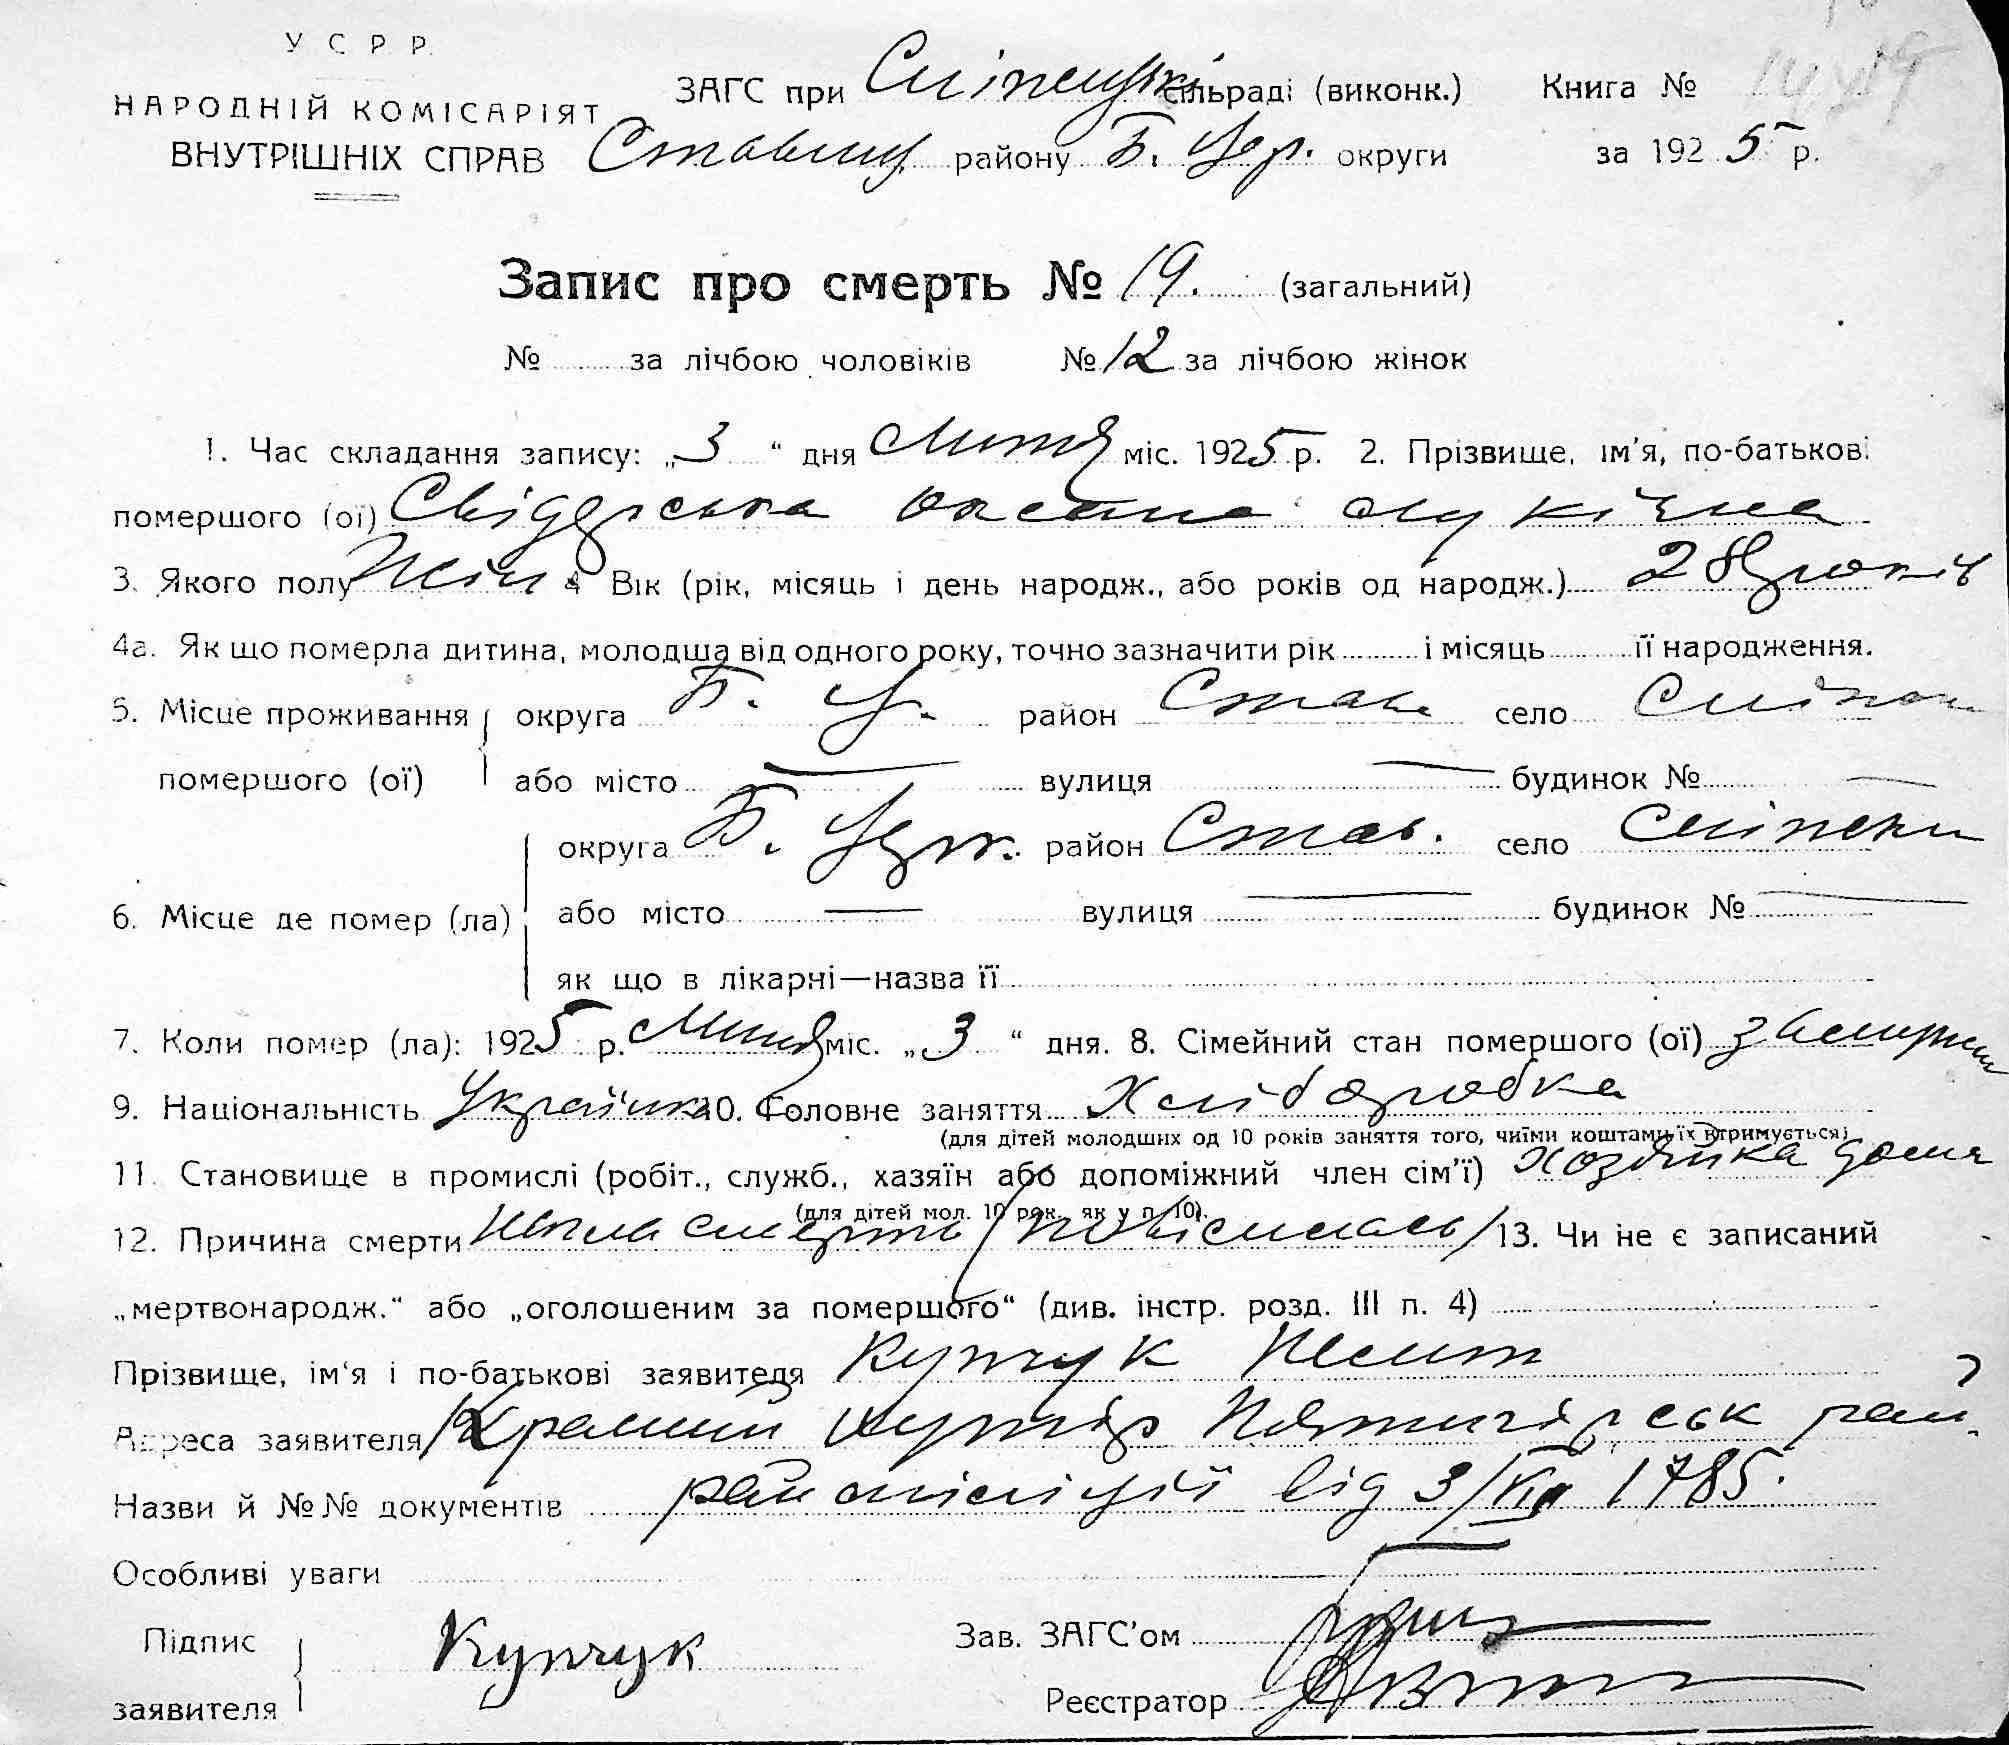 У С Р Р.
НАРОДНІЙ КОМІСАРІЯТ
ВНУТРІШНІХ СПРАВ
ЗАГС при сільраді (виконк.) Книга №
Ставищ. району Б. Цер. округи за 1925 р.
Запис про смерть № 19. (загальний)
№ за лічбою чоловіків № 12 за лічбою жінок
1. Час складання запису: „3“ дня міс. 1925 р. 2. Прізвище, ім'я, по-батькові
помершого (ої) Свідерська Оксана Луківна
3. Якого полу Жін 4 Вік (рік, місяць і день народж., або років од народж.) 28 років
4а. Як що померла дитина, молодша від одного року, точно зазначити рік і місяць її народження.
5. Місце проживання округа Б. Ц. район Став. село
помершого (ої) або місто — вулиця — будинок № —
округа Б. Церк. район Став. село
6. Місце де помер (ла) або місто — вулиця — будинок № —
як що в лікарні—назва її
7. Коли помер (ла): 1925 р. міс. „3“ дня. 8. Сімейний стан помершого (ої)
9. Національність Українка 10. Головне заняття Хліборобка
(для дітей молодших од 10 років заняття того, чиїми коштами їх втримується)
11. Становище в промислі (робіт., служб., хазяїн або допоміжний член сім'ї) Хозяйка дома
(для дітей мол. 10 рок. як у п. 10).
12. Причина смерти смерть /повісилась/ 13. Чи не є записаний
„мертвонародж.“ або „оголошеним за помершого“ (див. інстр. розд. III п. 4)
Прізвище, ім'я і по-батькові заявителя Купчук
Адреса заявителя хутір Пятигірськ рай.
Назви й №№ документів рай міліції від 3/VII 1785.
Особливі уваги
Підпис
заявителя Купчук
Зав. ЗАГС'ом
Реєстратор